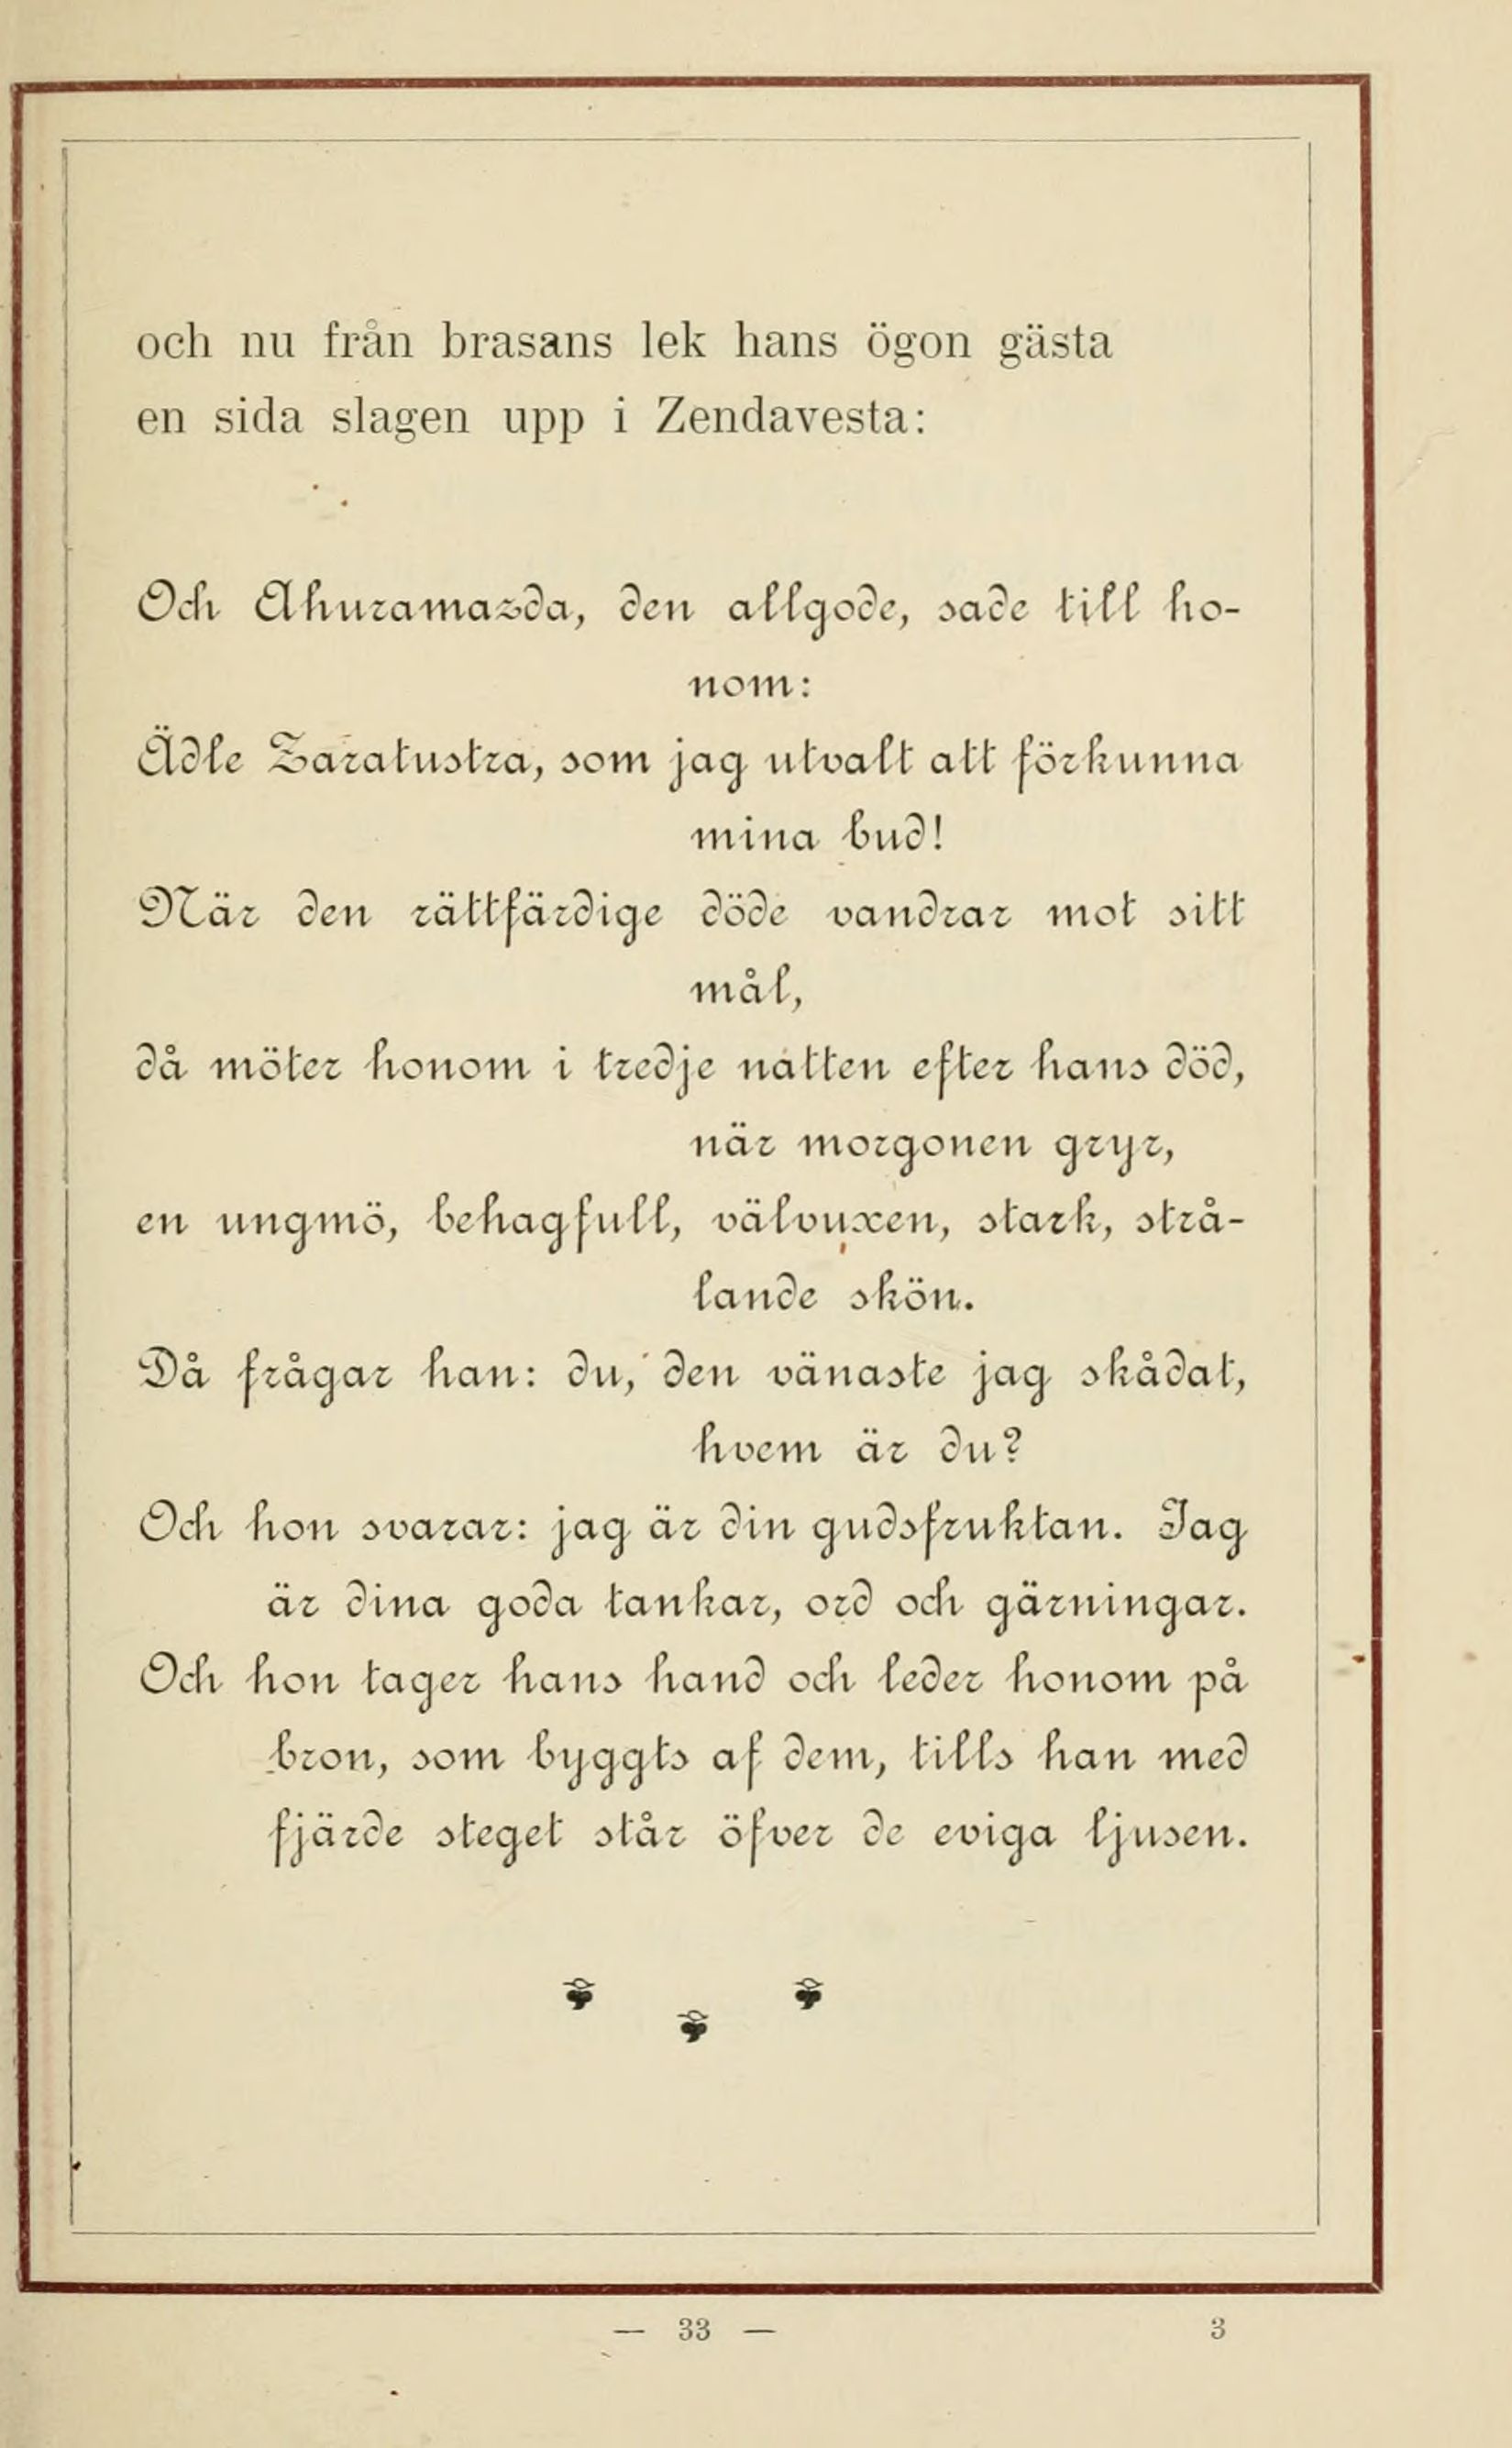 och nu från brasans lek hans ögon gästa
en sida slagen upp i Zendavesta:
Och Ahuramazda, den allgode, sade till ho-
nom:
Ädle Zaratustra, som jag utvalt att förkunna
mina bud!
När den rättfärdige döde vandrar mot sitt
mål,
då möter honom i tredje natten efter hans död,
när morgonen gryr,
en ungmö, behagfull, välvuxen, stark, strå-
lande skön.
Då frågar han: du, den vänaste jag skådat,
hvem är du?
Och hon svarar: jag är din gudsfruktan. Jag
är dina goda tankar, ord och gärningar.
Och hon tager hans hand och leder honom på
bron, som byggts af dem, tills han med
fjärde steget står öfver de eviga ljusen.
— 33 — 3